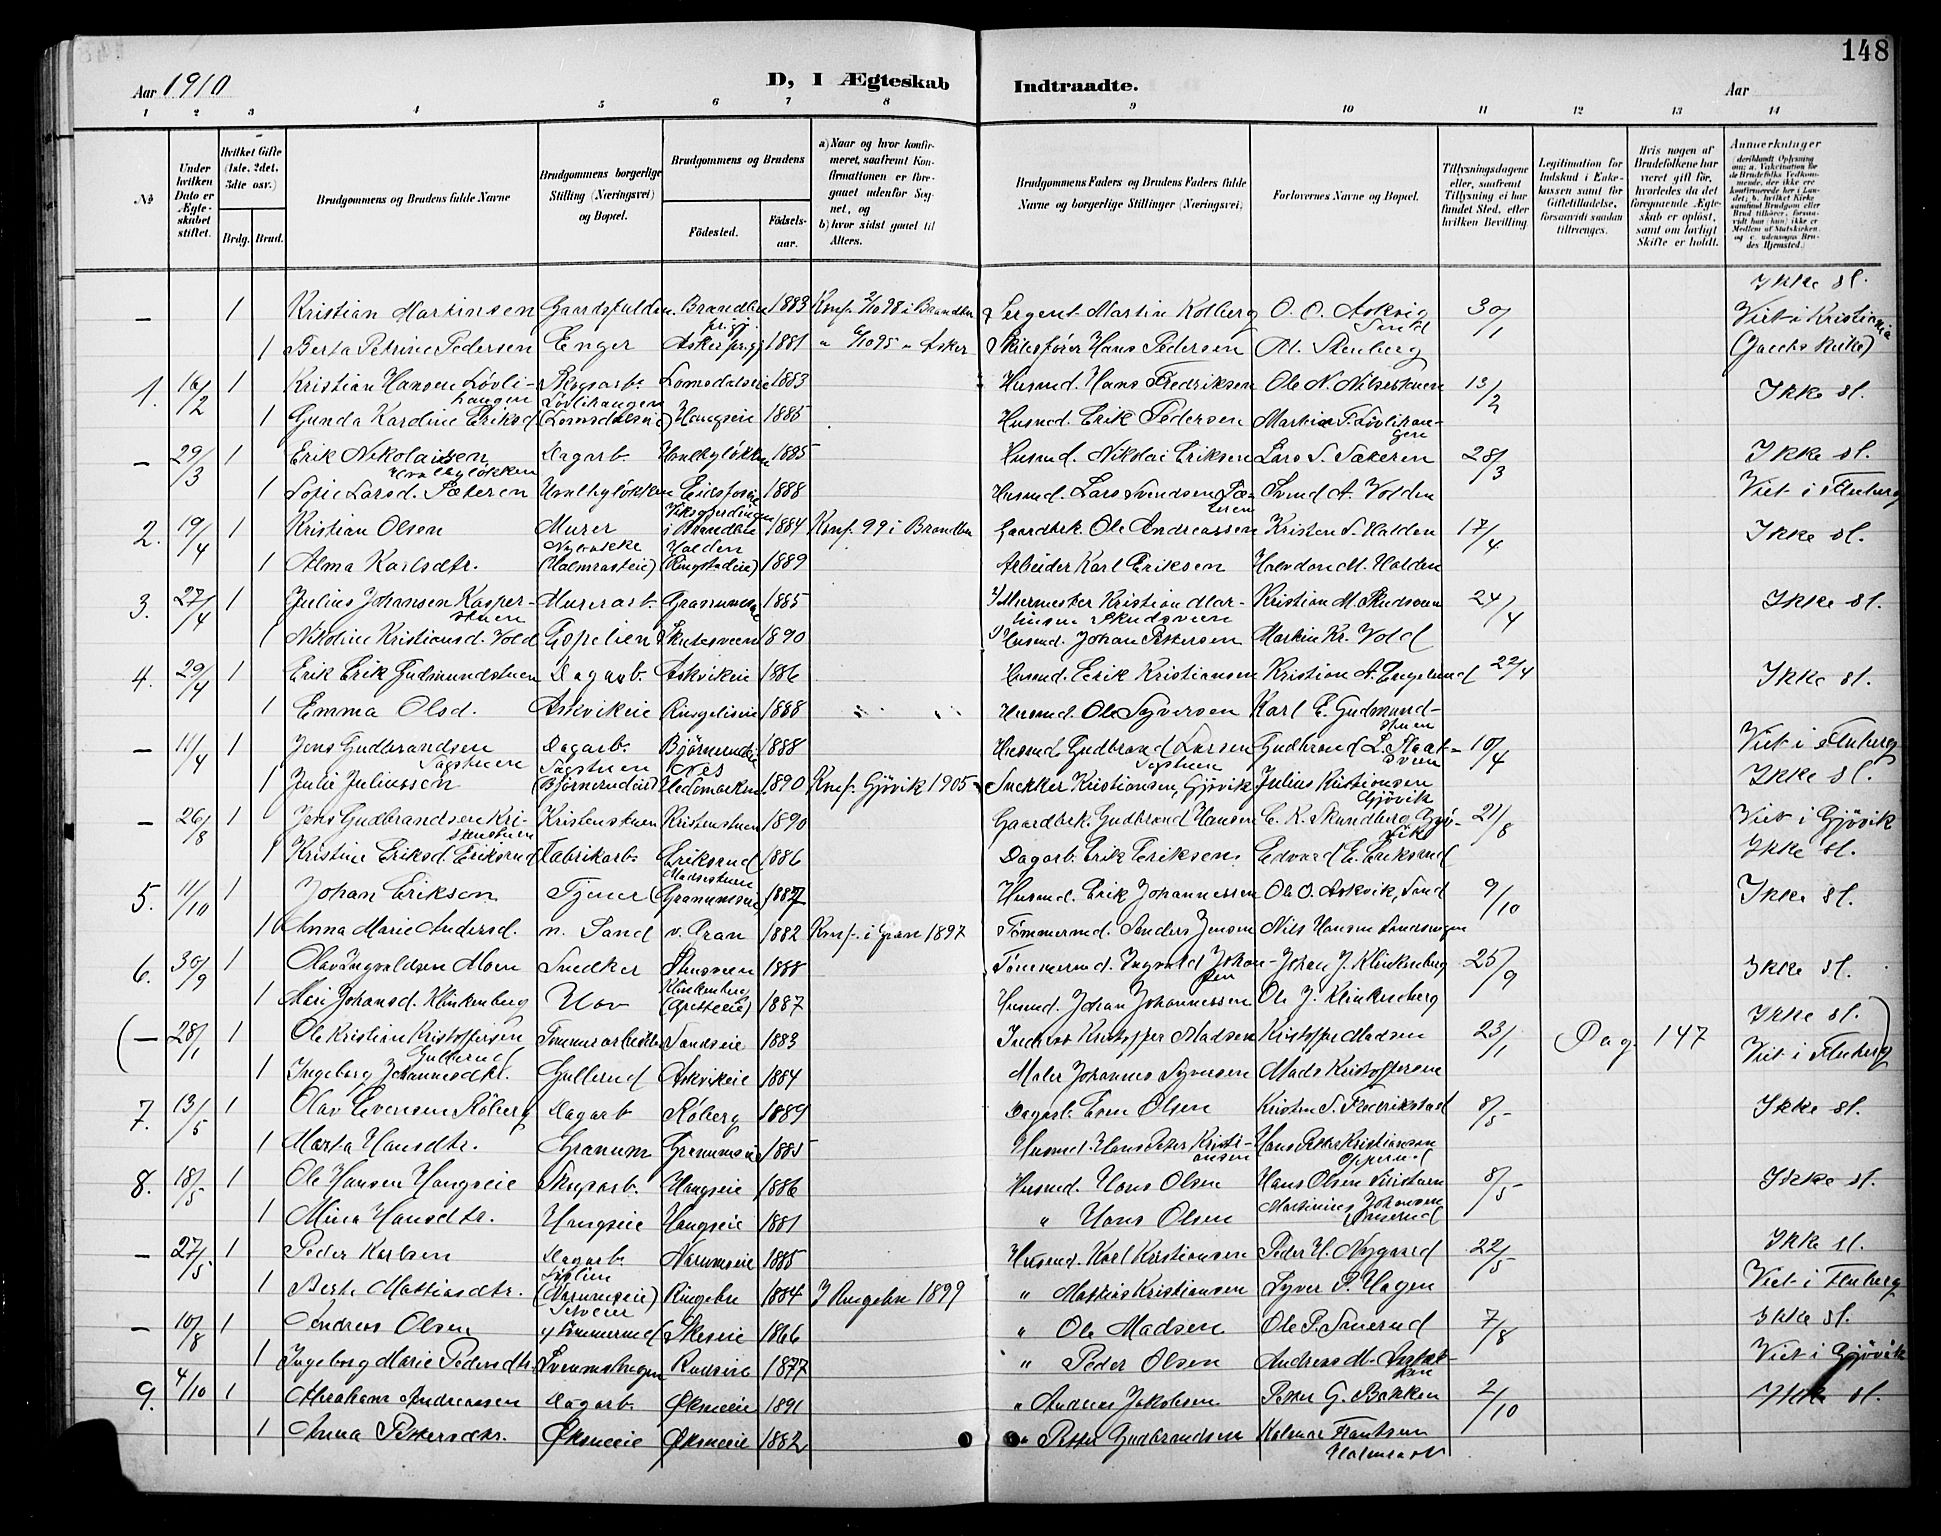 148
Aar 1910
D, I Ægteskab Indtraadte.
Aar
1 2 3 4 5 6 7 8 9 10 11 12 13 14
No
Under hvilken Dato er Ægteskabet stiftet.
Hvilket Gifte (1ste. 2det. 3die osv.)
Brdg. Brud.
Brudgommens og Brudens fulde Navne
Brudgommens borgerlige Stilling (Næringsvei) og Bopæl.
Brudgommens og Brudens
Fødested.
Fødselsaar.
a) Naar og hvor konfirmeret, saafremt Konfirmationen er foregaaet udenfor Sognet, og
b) hvor sidst gaaet til Alters.
Brudgommens Faders og Brudens Faders fulde Navne og borgerlige Stillinger (Næringsvei)
Forlovernes Navne og Bopæl.
Tillysningsdagene eller, saafremt Tillysning ei har fundet Sted, efter hvilken Bevilling
Legitimation for Indskud i Enkekassen samt for Giftetilladelse, forsaavidt saadan tiltrænges.
Hvis nogen af Brudefolkene har været gift før, hvorledes da det foregaaende Ægteskab er opløst, samt om lovligt Skifte er holdt.
Anmærkninger
— 1 Kristian Martinsen Gaardsfuldm. Brandbu prgj. 1883 Konf. 2/10 98 i Brandbu Sergent Martin Kolberg O. O. Askvig Sand 30/1 Ikke sl. Viet i Kristiania
1 Berta Petrine Pedersen Enger Asker prgj 1881 " 6/10 95 " Asker Skibsfører Hans Pedersen M. Stenberg (Jacobs kirke)
1. 16/2 1 Kristian Hansen Løvlihaugen Skogsarb. Løvlihaugen Lomsdalseie 1883 Husmd. Hans Fredriksen Ole N. Nilsestuen 13/2 Ikke sl.
1 Gunda Karoline Eriksd. (Lomsdalseie) Haugseie 1885 Husmd. Erik Pedersen Martin F. Løvlihaugen
— 29/3 1 Erik Nikolaisen Hvalbyløkken Dagarb. Hvalbyløkken 1885 Husmd. Nikolai Eriksen Lars S. Sæteren 28/3 Ikke sl.
1 Sofie Larsd. Sæteren Hvalbyløkken Eidsfoseie 1888 Husmd. Lars Svendsen Sæteren Svend A. Volden Viet i Fluberg
2. 19/4 1 Kristian Olsen Murer i Brandbu 1884 Konf. 99 i Brandbu Gaardbrk. Ole Andreassen Kristen S. Halden 17/4 Ikke sl.
1 Alma Karlsdtr. (Halmrasteie) Halden (Ringstadeie) 1889 Arbeider Karl Eriksen Halvdan M. Halden
3. 27/4 1 Julius Johansen Kasperstuen Murerarb. Granumseie 1885 Murmester Kristian Martinsen Skudsveen Kristian M. Skudsveen 24/4 Ikke sl.
1 Nikoline Kristiansd. Vold Espelien 1890 Husmd. Johan Pettersen Martin Kr. Vold
4. 29/4 1 Erik Erik Gudmundstuen Dagarb. Askvikeie 1886 Husmd. Erik Kristiansen Kristian A. Engelund 22/4 Ikke sl.
1 Emma Olsd. Askvikeie Ringelieie 1888 Husmd. Ole Syversen Karl E. Gudmundstuen
— 11/4 1 Jens Gudbrandsen Sagstuen Dagarb. Sagstuen Bjørnerudeie 1888 Husmd. Gudbrand Larsen Sagstuen Gudbrand L. Slaatsveen 10/4 Viet i Fluberg
1 Julie Juliussen (Bjørnerudeie) Nes Hedemarken 1890 Konf. Gjøvik 1905 Snekker Kristiansen, Gjøvik Julius Kristiansen Gjøvik Ikke sl.
— 26/8 1 Jens Gudbrandsen Kristenstuen Kristenstuen Kristenstuen 1890 Gaardbrk. Gudbrand Hansen E. K. Skundberg Gjøvik 21/8 Viet i Gjøvik
1 Kristine Eriksd. Eriksrud Fabrikarb. Eriksrud 1886 Dagarb. Erik Eriksen. Edvard E. Eriksrud Ikke sl.
5. 11/10 1 Johan Eriksen Tjener Madsestuen (Granumseie) 1887 Husmd. Erik Johannessen Ole O. Askvik, Sand 9/10 Ikke sl.
1 Anna Marie Andersd. n. Sand v. Gran 1882 Konf. i Gran 1897 Tømmermd. Anders Jensen Nils Hansen Sandsvegen
6. 30/9 1 Olav Ingvaldsen Moen Snedker 1888 Tømmermd. Ingvald Johansen Johan J. Klinkenberg 25/9 Ikke sl.
1 Mari Johansd. Klinkenberg Hov Klinkenberg 1887 Husmd. Johan Johannessen Ole J. Klinkenberg
( — 28/1 1 Ole Kristian Kristoffersen Gullerud Tømmerarbeider Sandseie 1883 Inderst Kristoffer Madsen Kristoffer Madsen 23/1 Pag. 147 Ikke sl. )
1 Ingeborg Johannesdtr. Gullerud Askvikeie 1884 Maler Johannes Syversen Mads Kristoffersen Viet i Fluberg
7. 13/5 1 Olav Evensen Røberg Dagarb. Røberg 1889 Dagarb. Even Olsen Kristen S. Fredrikstad 8/5 Ikke sl.
1 Marta Hansdtr. Granum Granumseie 1885 Husmd. Hans Peter Kristiansen Hans Peter Kristiansen Opperud
8. 18/5 1 Ole Hansen Haugseie Skogsarb. Haugseie 1886 Husmd. Hans Olsen Hans Olsen 8/5 Ikke sl.
1 Mina Hansdtr. Haugseie Haugseie 1881 " Hans Olsen Martinius Johansen
— 27/5 1 Peder Karlsen Dagarb. Narumseie 1885 Husmd. Karl Kristiansen Peder H. Nygaard 22/5 Ikke sl.
1 Berte Mattiasdtr. (Narumseie) Ringebu 1884 I Ringebu 1899 " Mattias Kristiansen Syver P. Hagen Viet i Fluberg
— 10/8 1 Andreas Olsen Selveier 1866 " Ole Madsen Ole P. Sauerud 7/8 Ikke sl.
1 Ingeborg Marie Pedersdtr. Rudseie 1877 " Peder Olsen Andreas M. Viet i Gjøvik
9. 4/10 1 Abraham Andreassen Dagarb. Øksneeie 1891 " Andreas Jakobsen Petter G. Bakken 2/10 Ikke sl.
1 Anna Pettersdtr. Øksneeie Øksneeie 1882 " Petter Gudbrandsen Kalmar Frantsen Halmrast